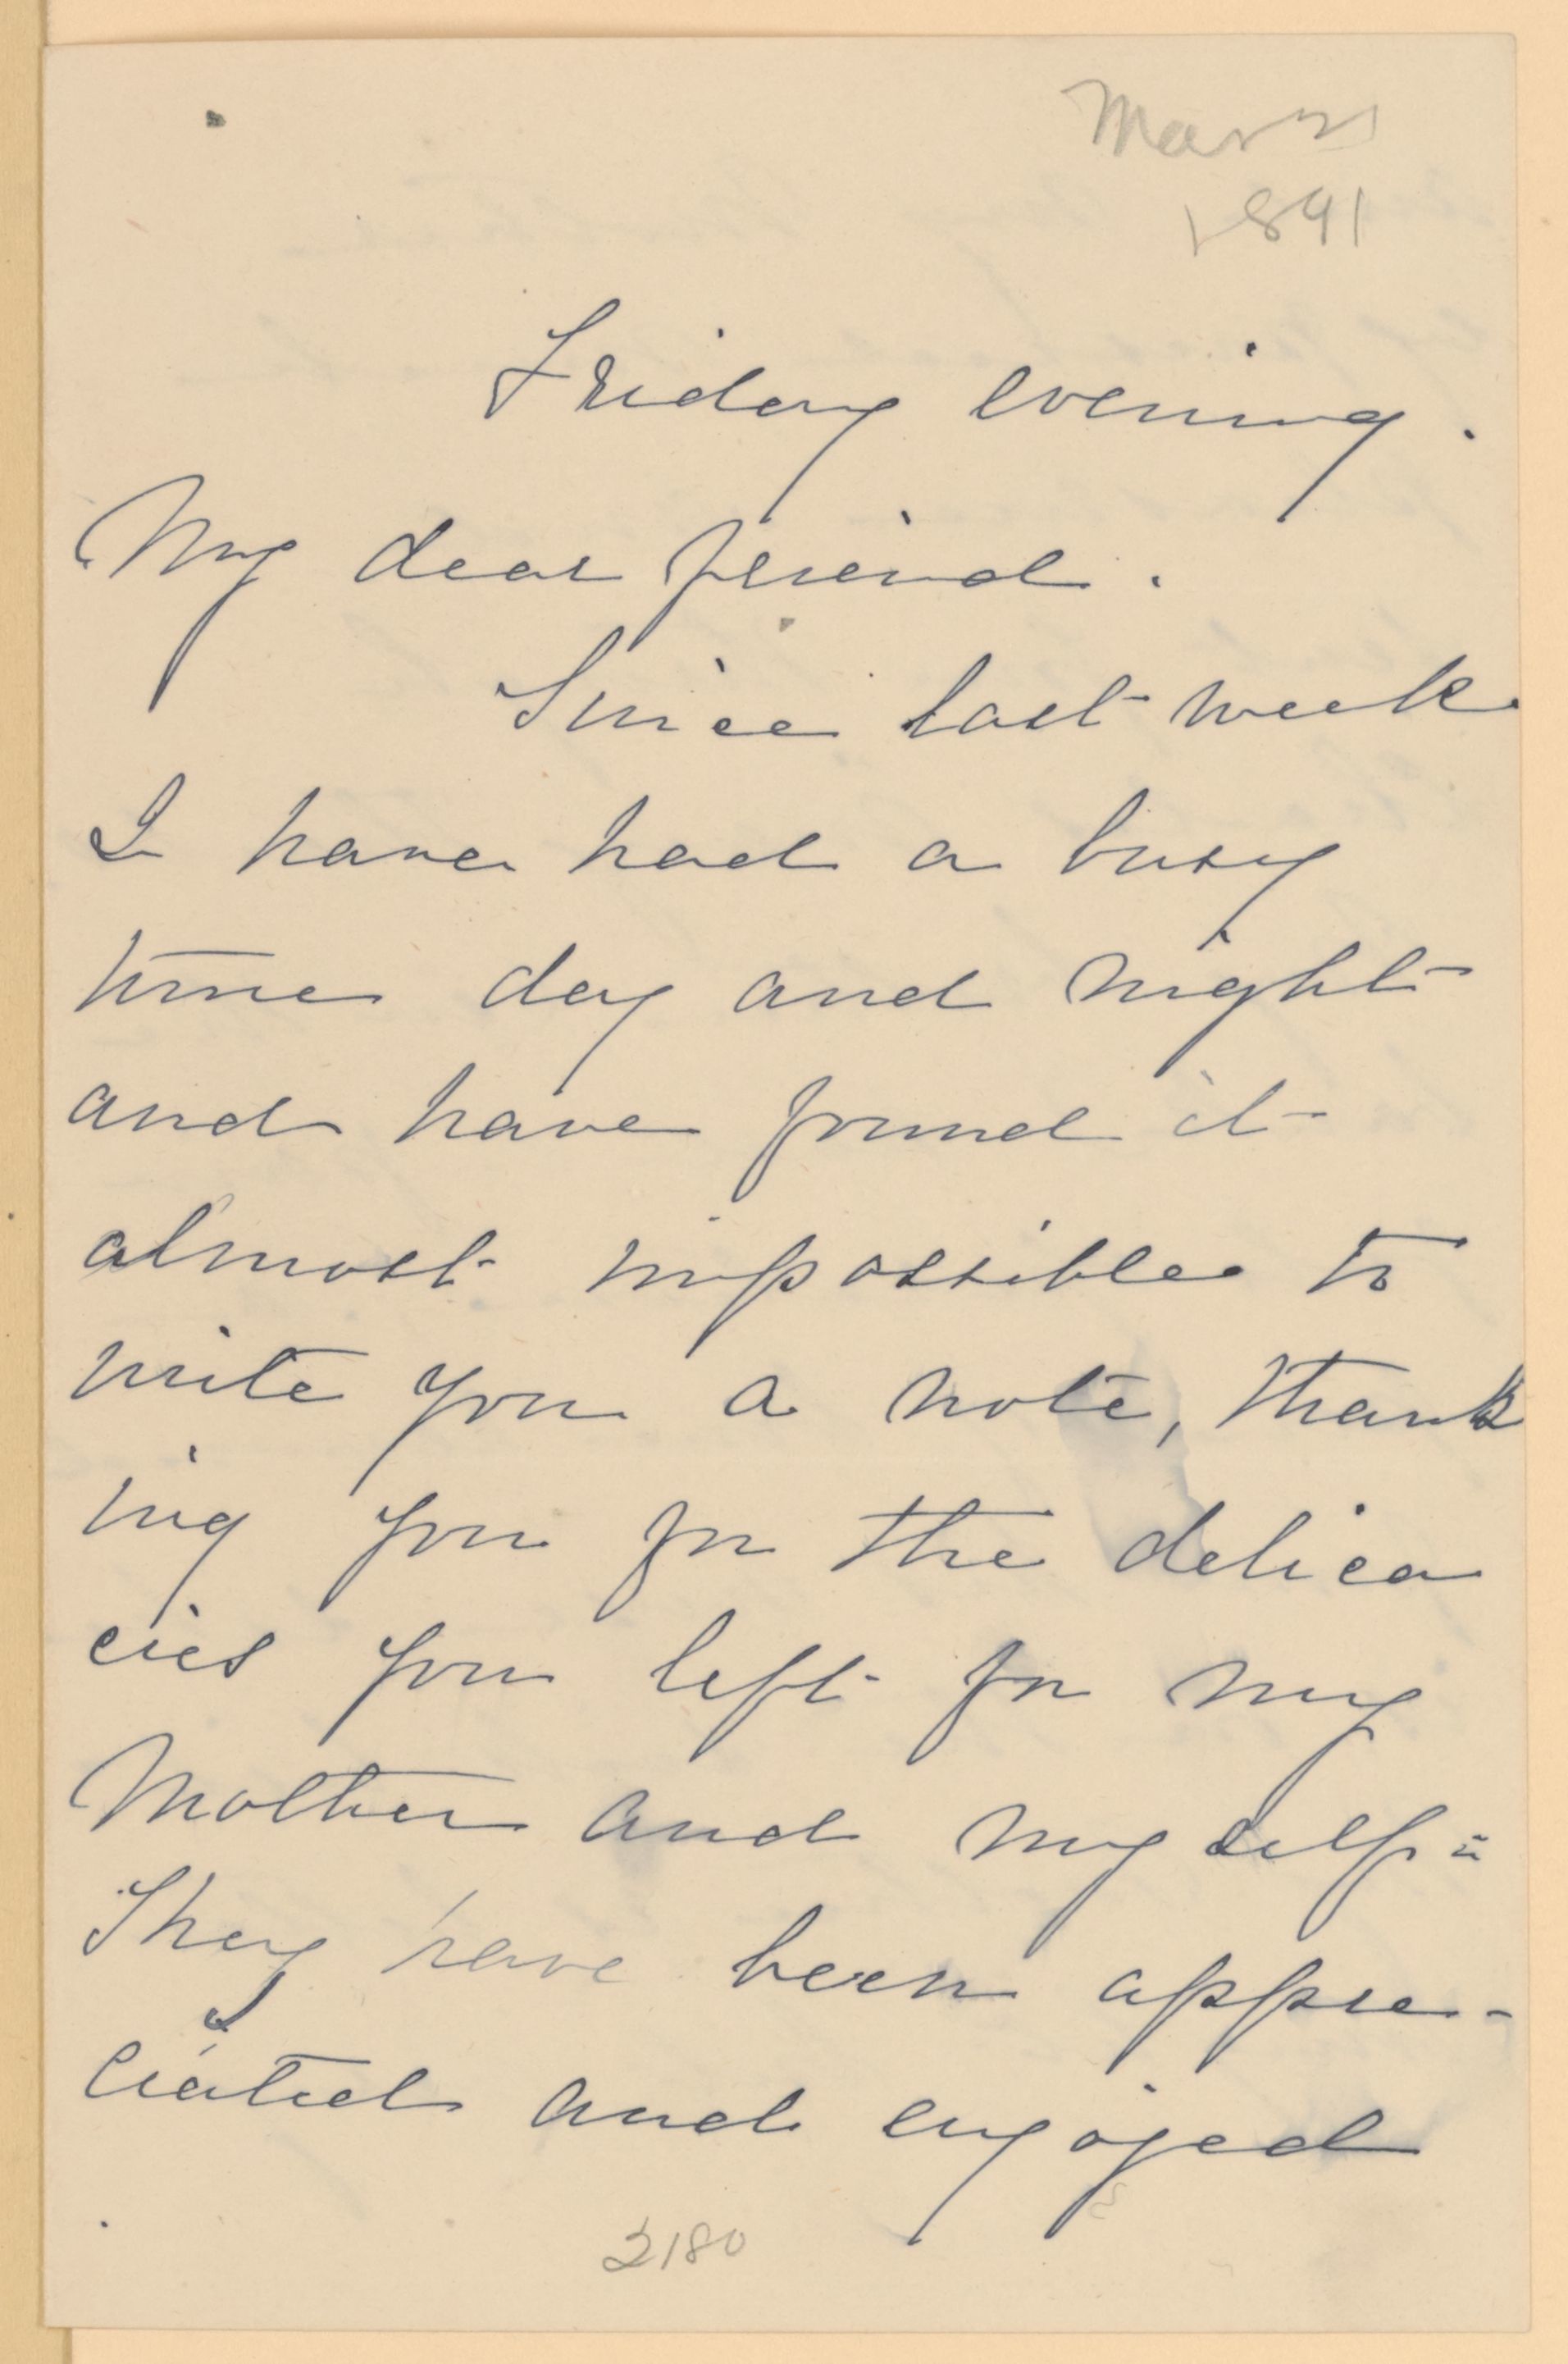 Mar 21
1891
Friday evening.
My dear friend.
Since last week
I have had a busy
time day and night
and have found it
almost impossible to
write you a note, thank
ing you for the delica
cies you left for my
Mother and myself=
They have been appre-
ciated and enjoyed
2180